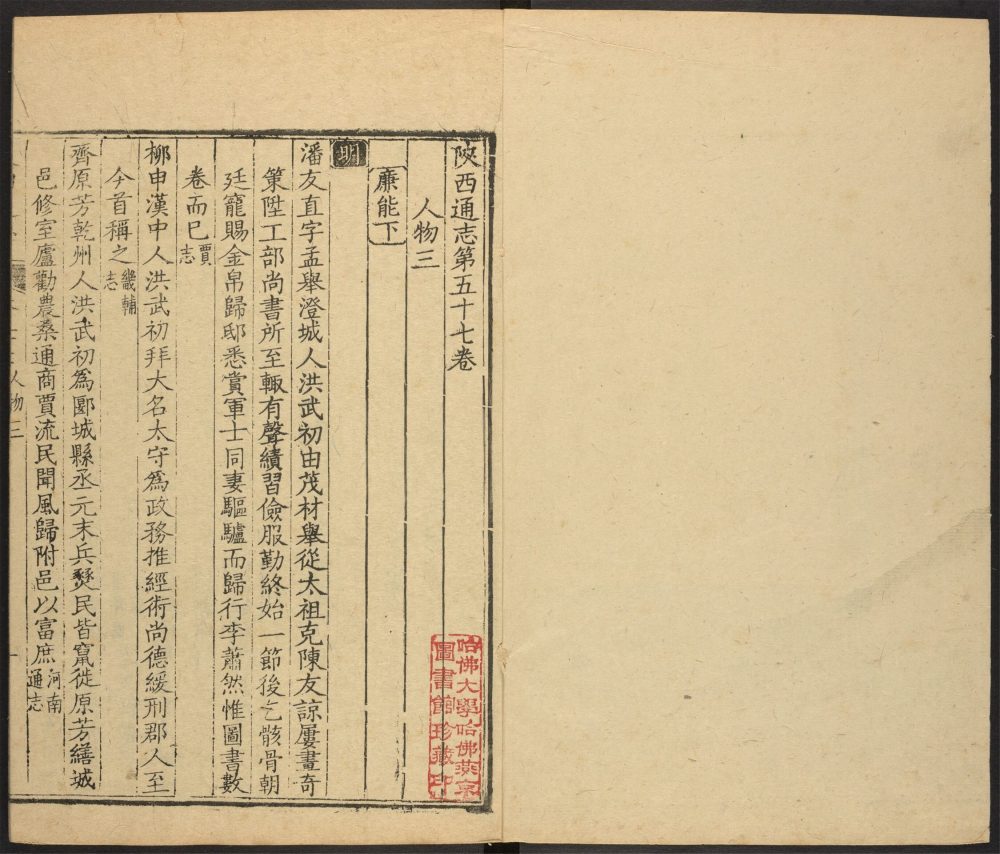 陝西通志第五十七卷
人物三
廉能下
明
潘友直字孟舉澄城人洪武初由茂材舉從太祖克陳友諒屢畫奇
策陞工部尚書所至輙有聲績習儉服勤終始一節後乞骸骨朝
廷寵賜金帛歸邸悉賞軍士同妻驅驢而歸行李蕭然惟圖書數
卷而已賈志
柳申漢中人洪武初拜大名太守爲政務推經術尚德緩刑郡人至
今首稱之畿輔志
齊原芳乾州人洪武初爲郾城縣丞元末兵燹民皆竄徙原芳繕城
邑修室廬勸農桑通商賈流民聞風歸附邑以富庶河南通志
人物三
哈佛大學哈佛燕京
圖書館珍藏印